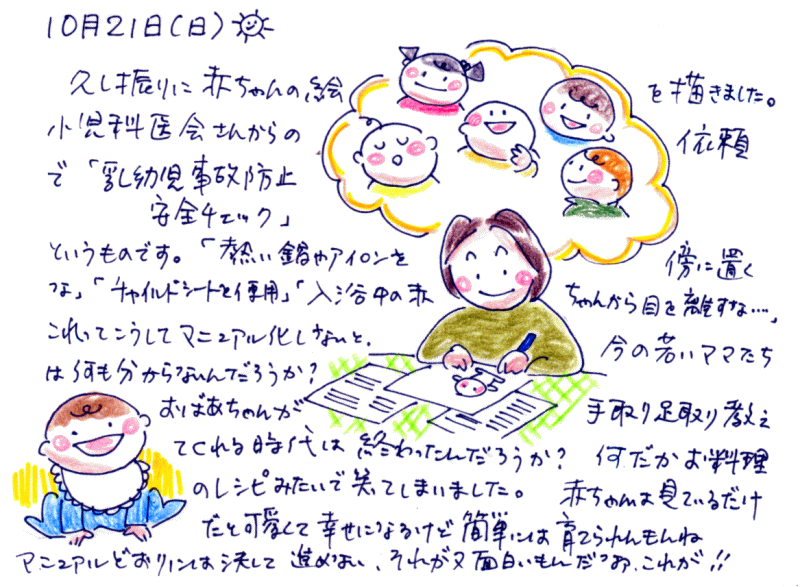 10月21日(日)
久し振りに赤ちゃんの絵を描きました。
小児科医会さんからの依頼
で「乳幼児事故防止
安全チェック」
というものです。「熱い鍋やアイロンを傍に置く
な」「チャイルドシートを使用」「入浴中の赤ちゃんから目を離すな…」
これってこうしてマニュアル化しないと、今の若いママたち
は何も分からないんだろうか?
おばあちゃんが手取り足取り教え
てくれる時代は終わったんだろうか? 何だかお料理
のレシピみたいで笑ってしまいました。赤ちゃんは見ているだけ
だと可愛くて幸せになるけど簡単には育てられんもんね
マニュアルどおりには決して進めない、それが又面白いもんだなあ、これが!!